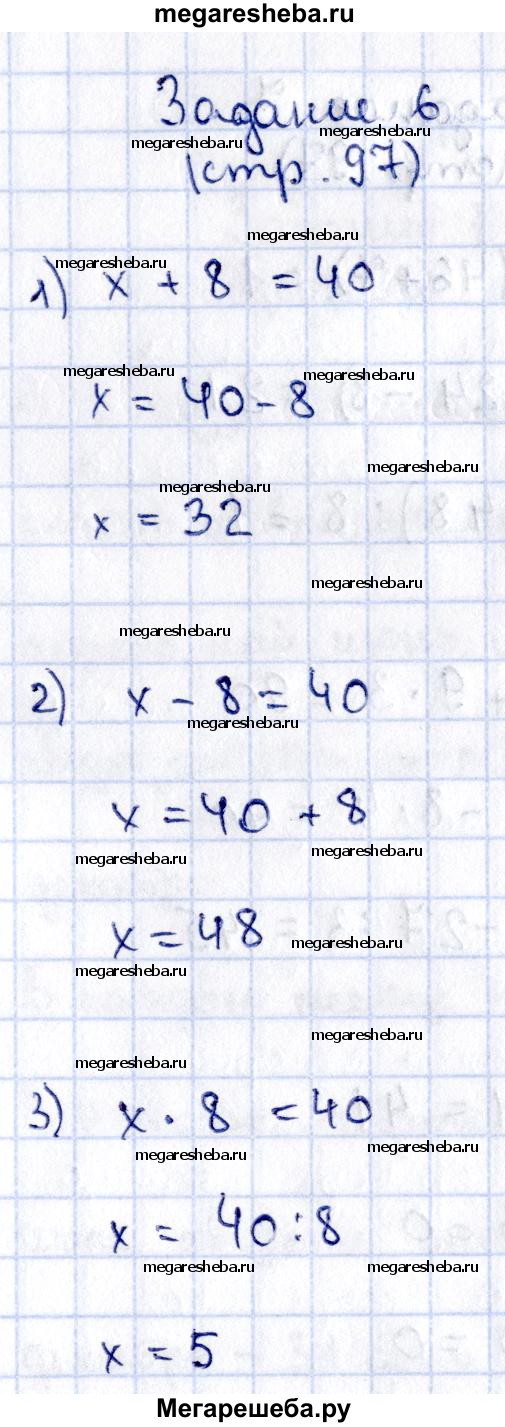 megaresheba.ru
Задание 6
megaresheba.ru
megaresheba.ru
(стр. 97)
megaresheba.ru
megaresheba.ru
1) x + 8 = 40
megaresheba.ru
megaresheba.ru
x = 40 - 8
megaresheba.ru
megaresheba.ru
x = 32
megaresheba.ru
megaresheba.ru
2) x - 8 = 40
megaresheba.ru
x = 40 + 8
megaresheba.ru
megaresheba.ru
x = 48
megaresheba.ru
megaresheba.ru
megaresheba.ru
megaresheba.ru
3) x · 8 = 40
megaresheba.ru
megaresheba.ru
x = 40 : 8
megaresheba.ru
megaresheba.ru
x = 5
Мегарешеба.ру